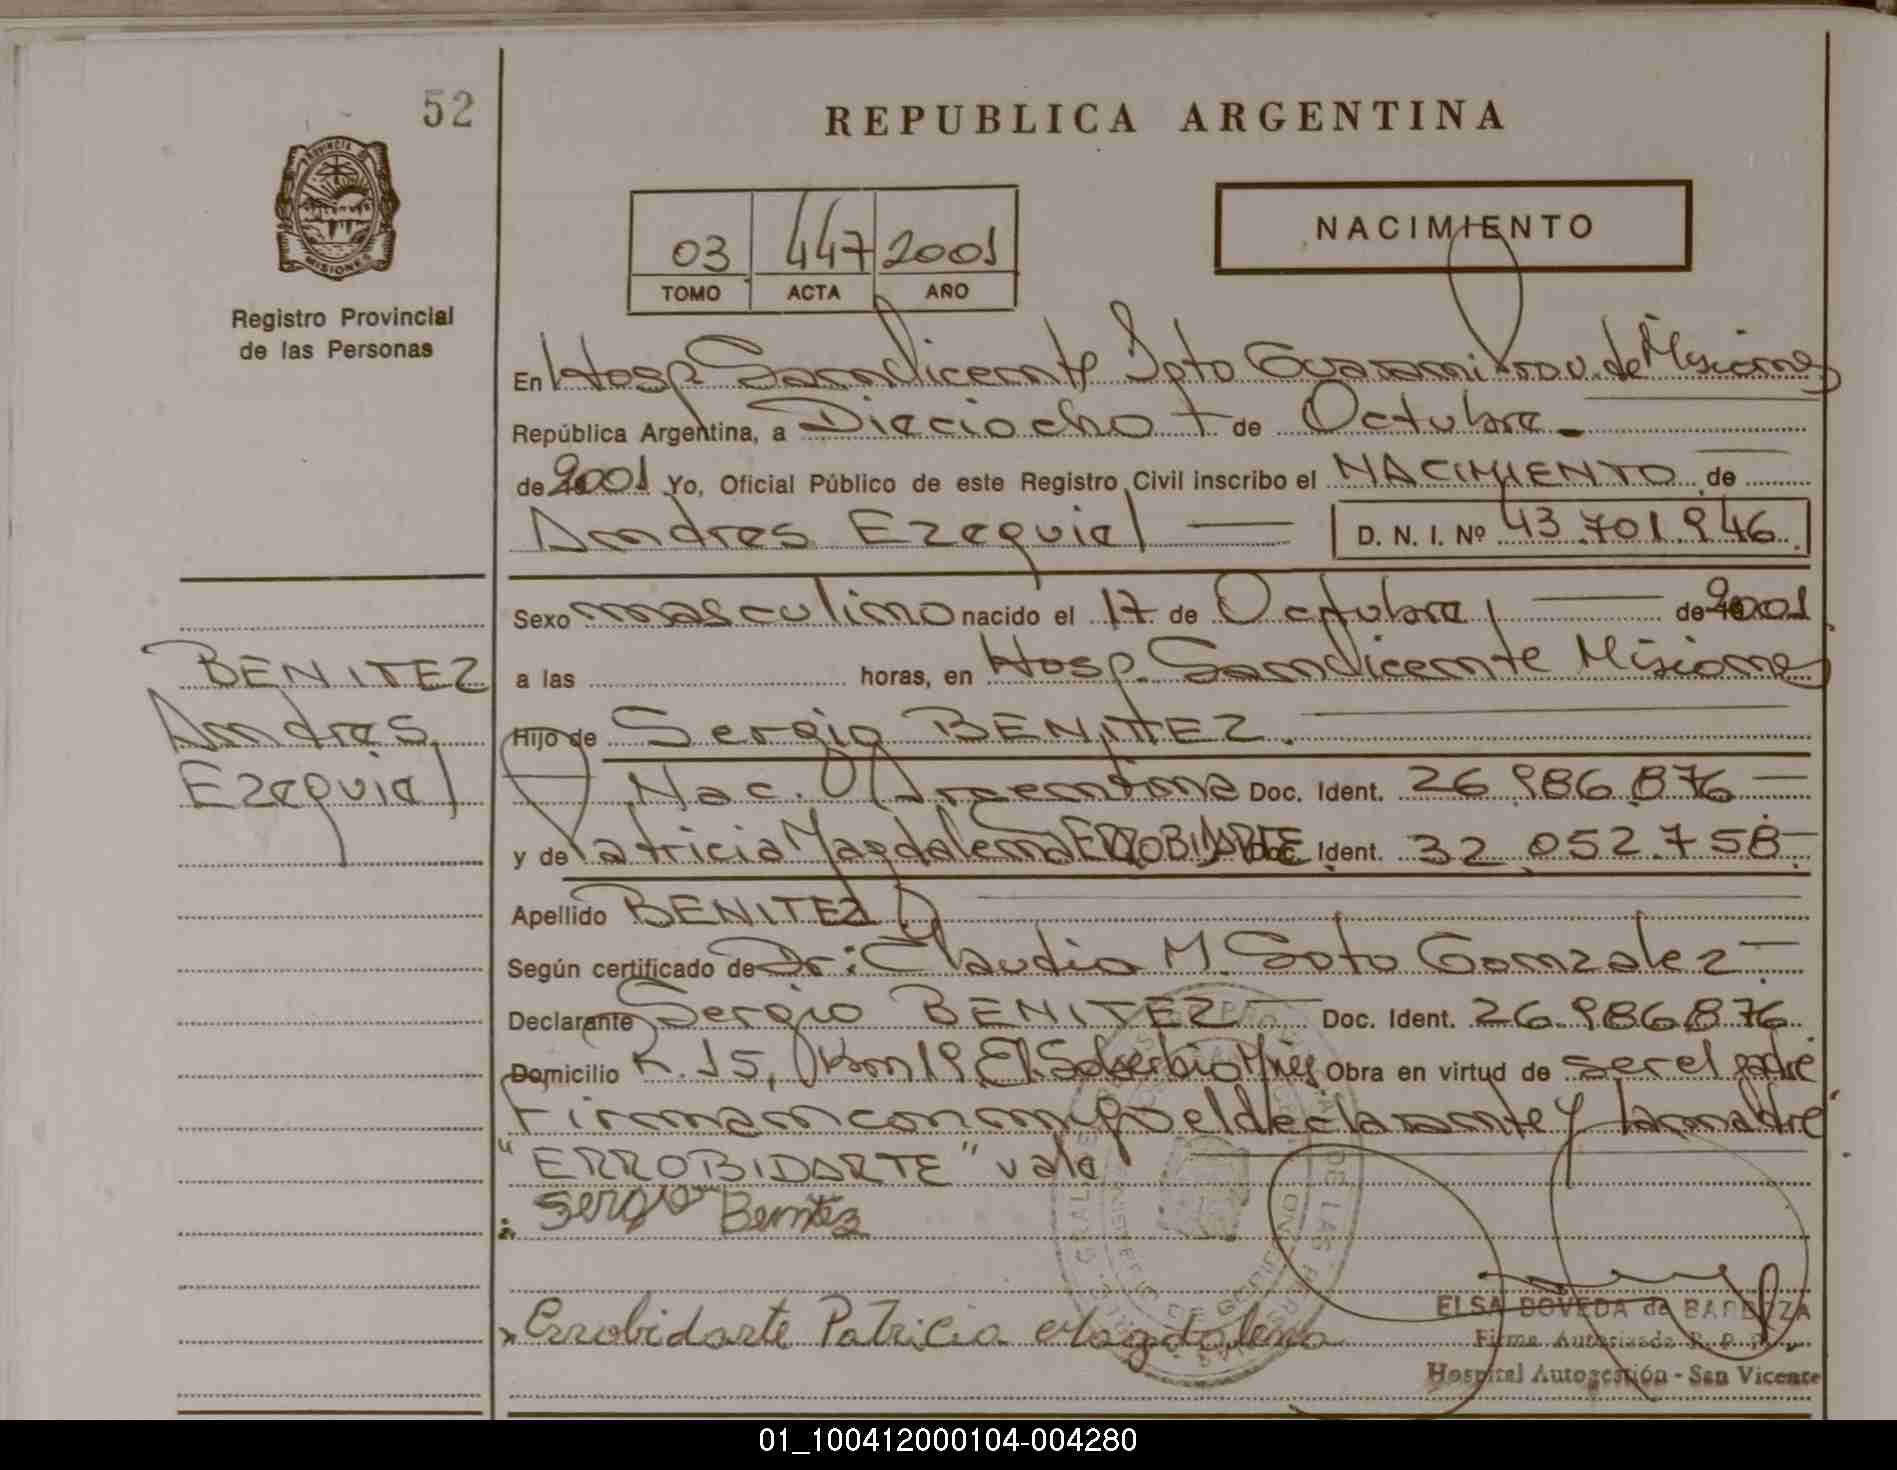 52
REPUBLICA ARGENTINA
PROVINCIA DE
MISIONES
Registro Provincial
de las Personas
03 447 2001
TOMO ACTA AÑO
NACIMIENTO
En Hosp San Vicente Dpto Guarani Prov. de Misiones
República Argentina, a Dieciocho de Octubre
de 2001 Yo, Oficial Público de este Registro Civil inscribo el NACIMIENTO de
Andres Ezequiel D. N. I. Nº 43.701.946
Sexo masculino nacido el 17 de Octubre de 2001
a las horas, en Hosp. San Vicente Misiones
BENITEZ
Andres
Ezequiel
Hijo de Sergio BENITEZ.
Nac. Argentina Doc. Ident. 26.986.876
y de Patricia Magdalena ERROBIDARTE Doc. Ident. 32.052.758
Apellido BENITEZ
Según certificado de Dr: Claudia M. Soto Gonzalez
Declarante Sergio BENITEZ Doc. Ident. 26.986.876
Domicilio R. 15, Km 19 El Soberbio Mnes Obra en virtud de ser el padre
Firman conmigo el declarante y la madre
"ERROBIDARTE" vale
Sergio Benitez
Errobidarte Patricia Magdalena
ELSA BOVEDA de BARBOZA
Firma Autorizada R. P. P.
Hospital Autogestión - San Vicente
01_100412000104-004280